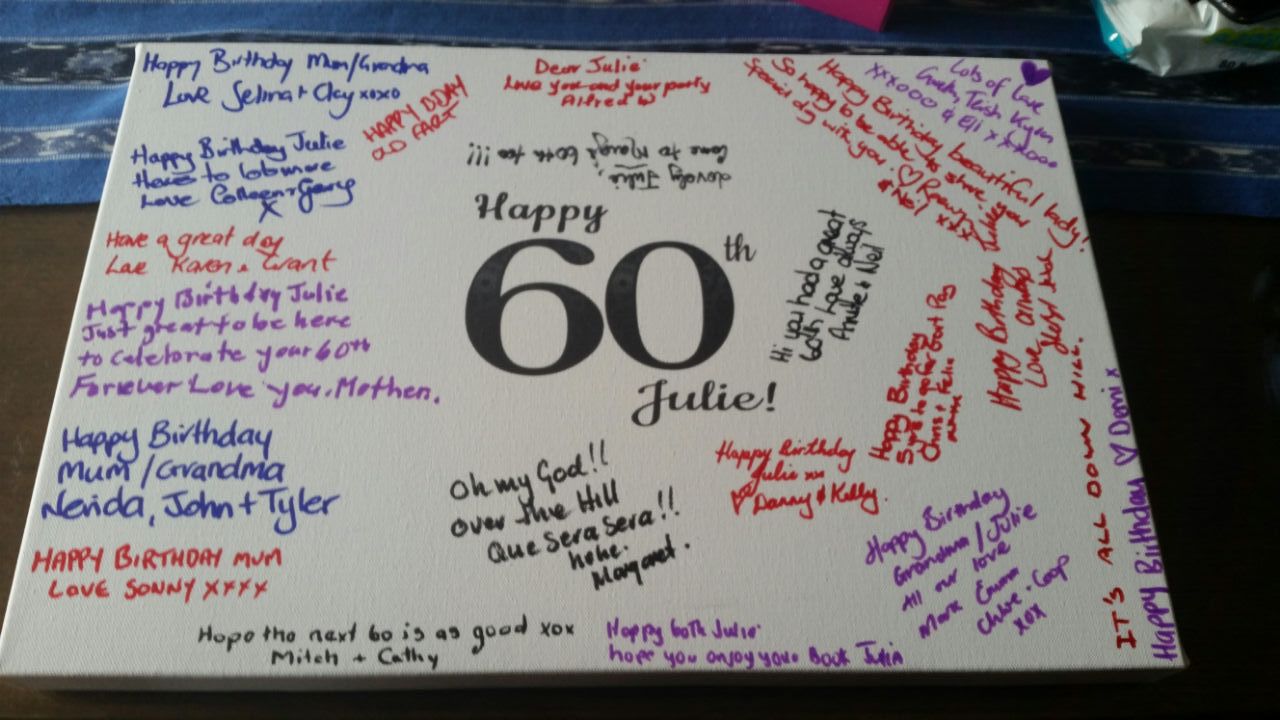 Happy Birthday Mum/Grandma
Love Selina + Clay xoxo
HAPPY BDAY
OLD FART
Dear Julie
Love you and your party
Alfred W
Lots of love
Trish Kym
xxxooo & Eli xxxooo
Happy Birthday beautiful lady!
So happy to be able to share your
special day with you! ♡
& Neil xxx
Happy Birthday Julie
Here's to lots more
Love Colleen + Gary
X
Lovely Julie,
60th too !!!
Have a great day
Love Karen & Grant
Happy Birthday Julie
Just great to be here
to celebrate your 60th
Forever Love you. Mother.
Happy Birthday
Mum/Grandma
Nerida, John + Tyler
HAPPY BIRTHDAY MUM
LOVE SONNY xxxx
Happy
60th
Julie!
Hi you had a great
60th Love always
& Neil
Happy Birthday Julie
Love always
Happy Birthday
Chris & Felix
Oh my God!!
over the Hill
Que Sera Sera!!
hehe.
Margaret.
Happy Birthday
Julie xx
♡ Danny & Kelly.
Happy Birthday
Grandma/Julie
All our love
Mark Emma
Chloe. Coop
xox
IT'S ALL DOWN HILL.
Happy Birthday ♡ Demi x
Hope the next 60 is as good xox
Mitch + Cathy
Happy 60th Julie
hope you enjoy your Book Julia